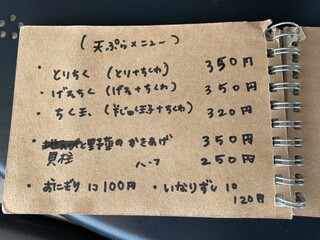 (天ぷらメニュー)
・とりちく (とり+ちくわ) 350円
・げそちく (げそ+ちくわ) 350円
・ちく玉、(半じゅく玉子+ちくわ) 320円
・と野菜のかきあげ 350円
貝柱 ハーフ 250円
・おにぎり 1コ 100円 ・いなりずし 1コ
120円